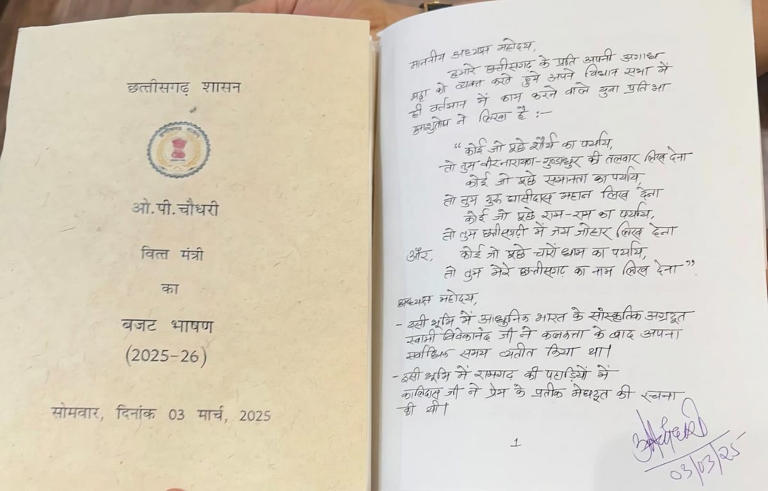 छत्तीसगढ़ शासन
ओ.पी.चौधरी
वित्त मंत्री
का
बजट भाषण
(2025-26)
सोमवार, दिनांक 03 मार्च, 2025
माननीय अध्यक्ष महोदय,
हमारे छत्तीसगढ़ के प्रति अपनी अगाध
श्रद्धा को व्यक्त करते हुये अपने विधान सभा में
ही वर्तमान में काम करने वाले युवा प्रतिभा
ने लिखा है :-
“ कोई जो पूछे शौर्य का पर्याय,
तो तुम वीरनारायण-गुण्डाधुर की तलवार लिख देना
कोई जो पूछे समानता का पर्याय,
तो तुम गुरु घासीदास महान लिख देना
कोई जो पूछे राम-राम का पर्याय,
तो तुम छत्तीसगढ़ी में जय जोहार लिख देना
और, कोई जो पूछे चारों धाम का पर्याय,
तो तुम मेरे छत्तीसगढ़ का नाम लिख देना ”
अध्यक्ष महोदय,
- इसी भूमि में आधुनिक भारत के सांस्कृतिक अग्रदूत
स्वामी विवेकानंद जी ने कलकत्ता के बाद अपना
सर्वाधिक समय व्यतीत किया था।
- इसी भूमि में रामगढ़ की पहाड़ियों में
कालिदास जी ने प्रेम के प्रतीक मेघदूत की रचना
की थी।
1
03/03/25